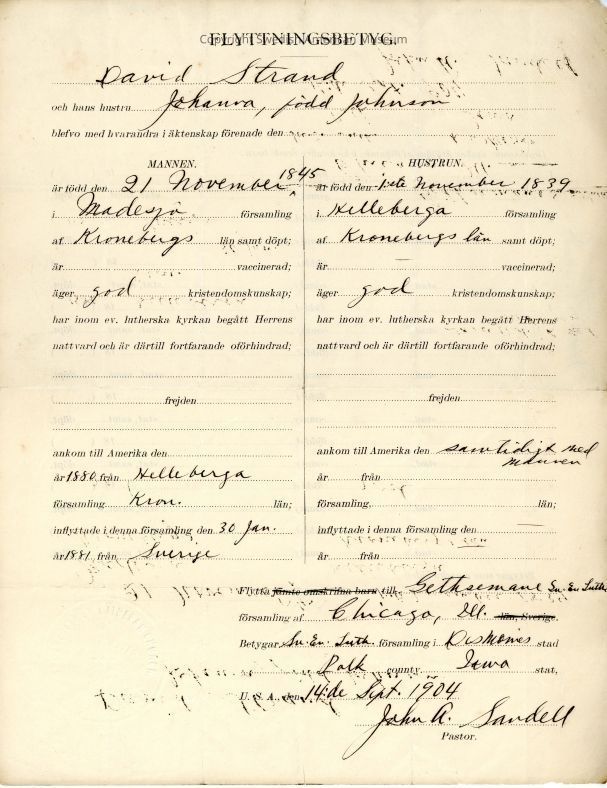 Copyright Swedish American Museum
FLYTTNINGSBETYG.
David Strand
och hans hustru Johanna, född Johnson
blefvo med hvarandra i äktenskap förenade den
MANNEN.
är född den 21 November 1845
i Madesjö församling
af Kronebergs län samt döpt;
är vaccinerad;
äger god kristendomskunskap;
har inom ev. lutherska kyrkan begått Herrens
nattvard och är därtill fortfarande oförhindrad;
frejden
ankom till Amerika den
år 1880 från Helleberga
församling Kron. län;
inflyttade i denna församling den 30 Jan.
år 1881 från Sverige
HUSTRUN.
är född den 1ste November 1839
i Helleberga församling
af Kronebergs län samt döpt;
är vaccinerad;
äger god kristendomskunskap;
har inom ev. lutherska kyrkan begått Herrens
nattvard och är därtill fortfarande oförhindrad;
frejden
ankom till Amerika den samtidigt med
mannen
år från
församling län;
inflyttade i denna församling den
år från
Flytta jämte omskrifna barn till Gethsemane Sv. Ev. Luth.
församling af Chicago, Ill. län, Sverige.
Betygar Sv. Ev. Luth. församling i DesMoines stad
Polk county Iowa stat,
U. S. A. den 14:de Sept. 1904
John A. Sandell
Pastor.